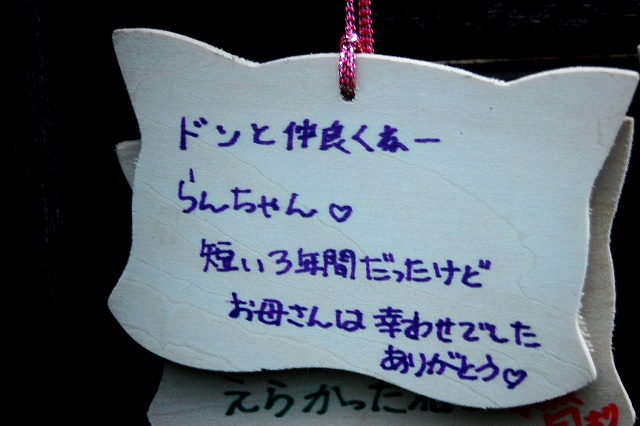 ドンと仲良くねー
らんちゃん♡
短い3年間だったけど
お母さんは幸わせでした
ありがとう♡
えらかったね